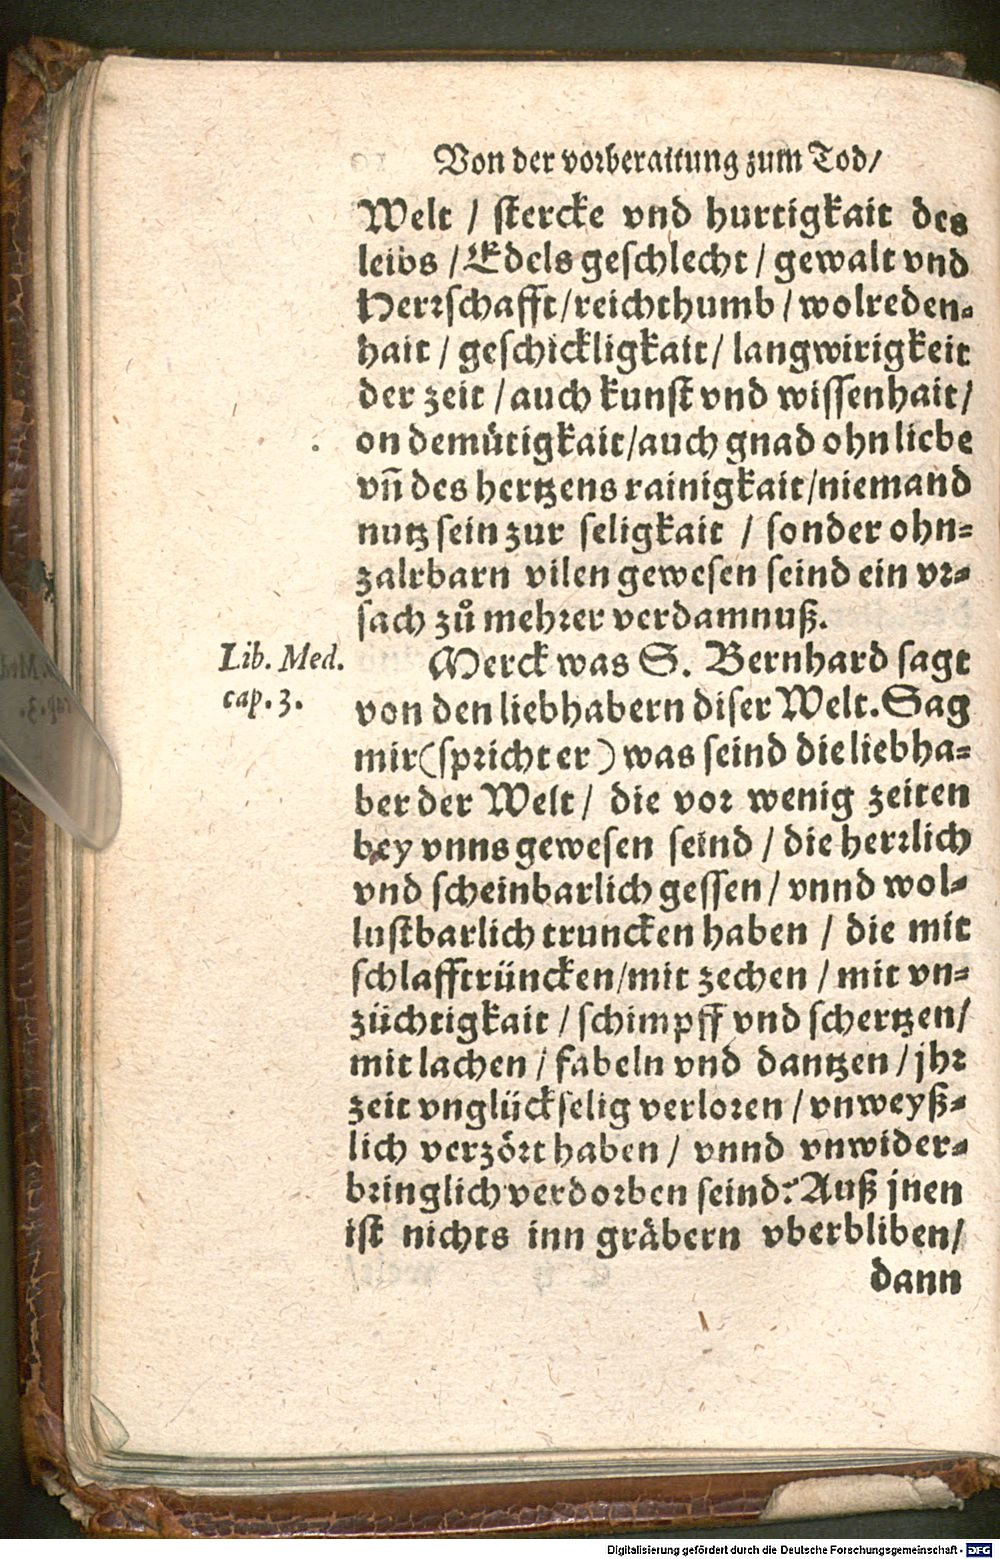 Von der vorberaittung zum Tod/
Welt / stercke vnd hurtigkait des
leibs / Edels geschlecht / gewalt vnd
Herrschafft/reichthumb / wolreden-
hait / geschickligkait/ langwirigkeit
der zeit / auch kunst vnd wissenhait/
on demütigkait/auch gnad ohn liebe
vñ des hertzens rainigkait/niemand
nutz sein zur seligkait / sonder ohn-
zalrbarn vilen gewesen seind ein vr-
sach zů mehrer verdamnuß.
Lib. Med.
cap. 3.
Merck was S. Bernhard sagt
von den liebhabern diser Welt. Sag
mir (spricht er) was seind die liebha-
ber der Welt / die vor wenig zeiten
bey vnns gewesen seind / die herrlich
vnd scheinbarlich gessen / vnnd wol-
lustbarlich truncken haben / die mit
schlafftrüncken/mit zechen / mit vn-
züchtigkait / schimpff vnd schertzen/
mit lachen / fabeln vnd dantzen / jhr
zeit vnglückselig verloren / vnweyß-
lich verzört haben / vnnd vnwider-
bringlich verdorben seind? Auß jnen
ist nichts inn gräbern vberbliben/
dann
Digitalisierung gefördert durch die Deutsche Forschungsgemeinschaft - DFG